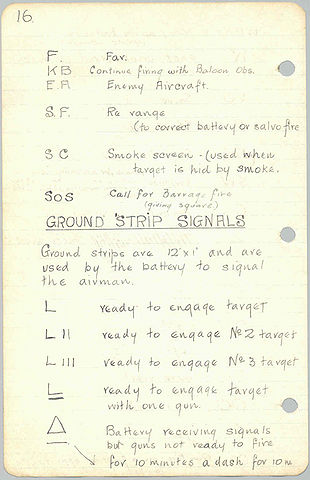 16.
F. Far.
KB Continue firing with Baloon Obs.
E A Enemy Aircraft.
S.F. Re range
(to correct battery or salvo fire
S C Smoke screen - (used when
target is hid by smoke.
SOS Call for Barrage fire
(giving square)
GROUND STRIP SIGNALS
Ground strips are 12'x1' and are
used by the battery to signal
the airman.
L ready to engage target
L II ready to engage No 2 target
L III ready to engage No 3 target
L ready to engage target
with one gun.
Δ Battery receiving signals
but guns not ready to fire
for 10 minutes a dash for 10 m